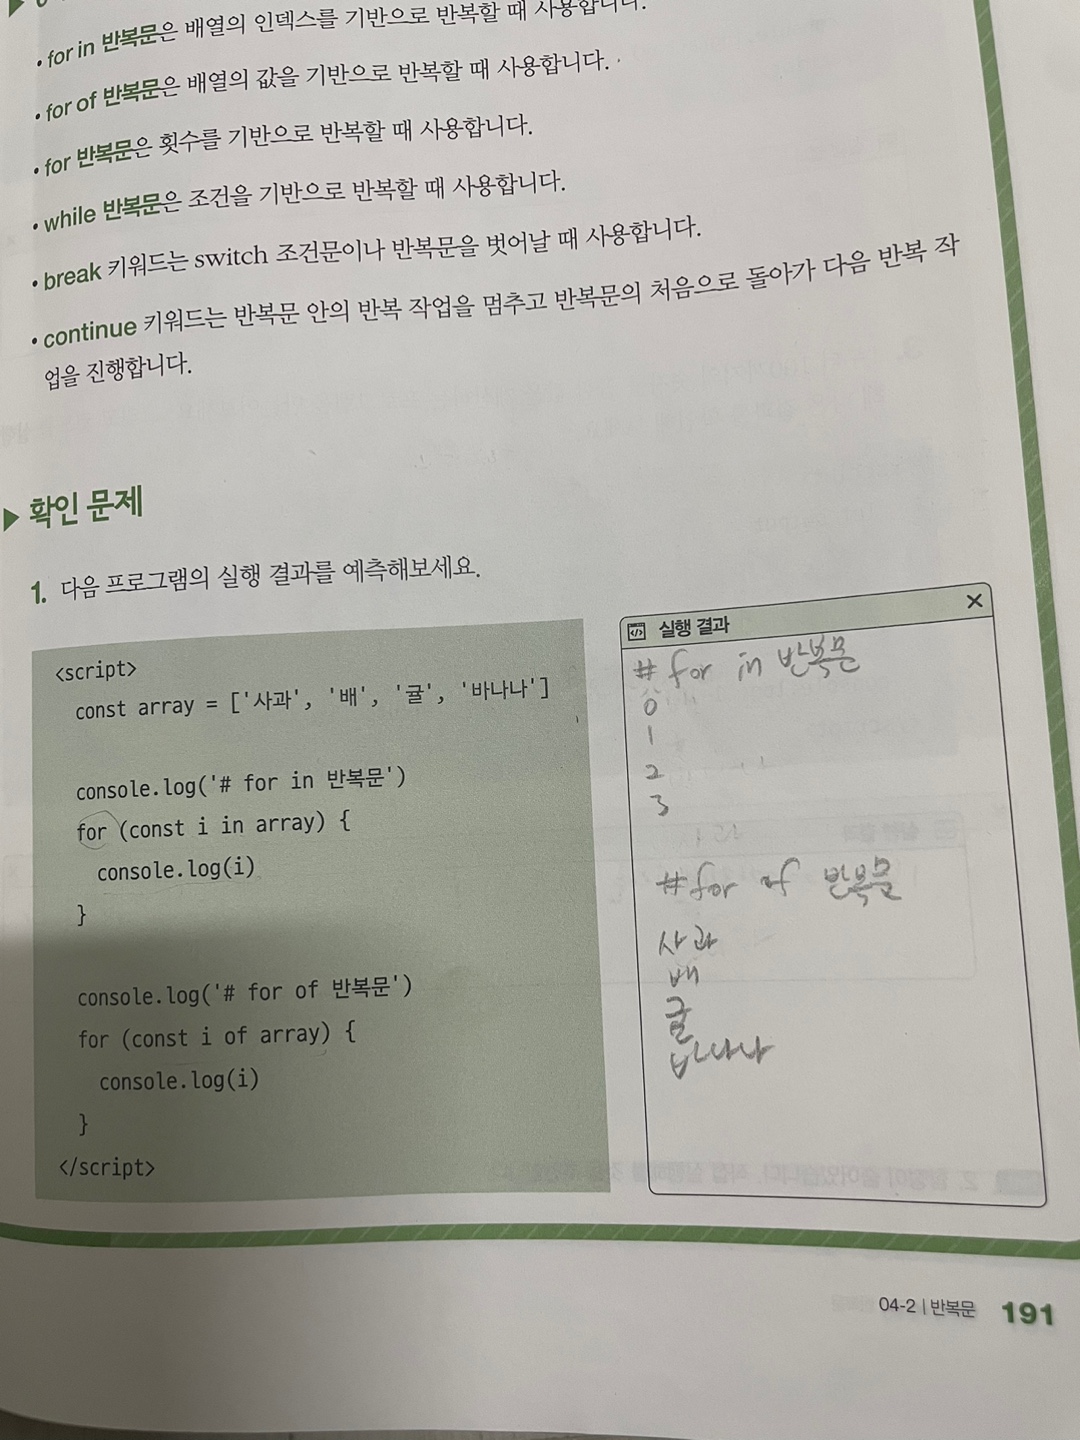 • for in 반복문은 배열의 인덱스를 기반으로 반복할 때 사용합니다.
• for of 반복문은 배열의 값을 기반으로 반복할 때 사용합니다.
• for 반복문은 횟수를 기반으로 반복할 때 사용합니다.
• while 반복문은 조건을 기반으로 반복할 때 사용합니다.
• break 키워드는 switch 조건문이나 반복문을 벗어날 때 사용합니다.
• continue 키워드는 반복문 안의 반복 작업을 멈추고 반복문의 처음으로 돌아가 다음 반복 작
업을 진행합니다.
▶ 확인 문제
1. 다음 프로그램의 실행 결과를 예측해보세요.
<script>
const array = ['사과', '배', '귤', '바나나']
console.log('# for in 반복문')
for (const i in array) {
console.log(i)
}
console.log('# for of 반복문')
for (const i of array) {
console.log(i)
}
</script>
실행 결과
# for in 반복문
0
1
2
3
# for of 반복문
사과
배
귤
바나나
04-2 | 반복문 191